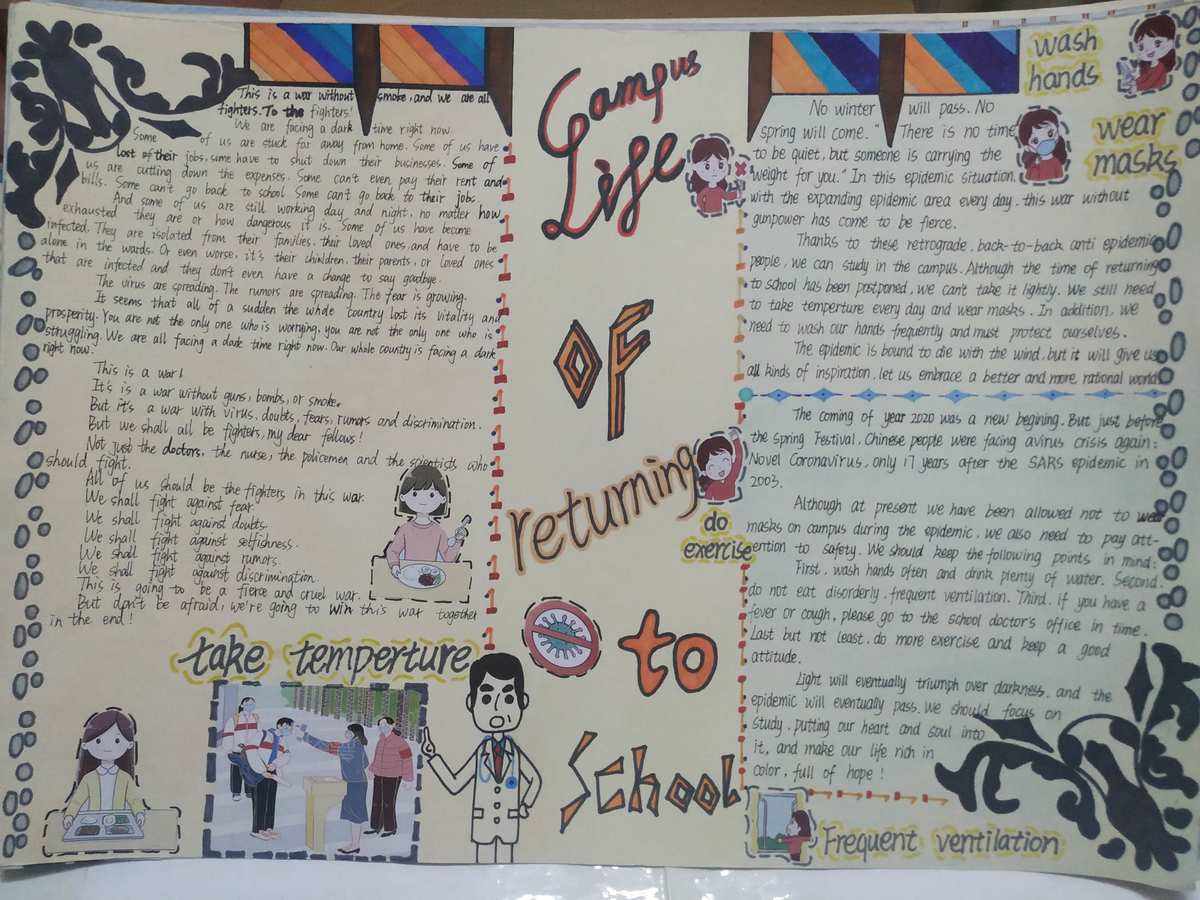 This is a war without smoke, and we are all
fighters. To the fighters!
We are facing a dark time right now.
Some of us are stuck far away from home. Some of us have
lost of their jobs, some have to shut down their businesses. Some of
us are cutting down the expenses. Some can't even pay their rent and
bills. Some can't go back to school. Some can't go back to their job.
And some of us are still working day and night, no matter how
exhausted they are or how dangerous it is. Some of us have become
infected. They are isolated from their families, their loved ones, and have to be
alone in the wards. Or even worse, it's their children, their parents, or loved ones
that are infected and they don't even have a change to say goodbye.
The virus are spreading. The rumors are spreading. The fear is growing.
It seems that all of a sudden the whole country lost its vitality and
prosperity. You are not the only one who is worrying, you are not the only one who is
struggling. We are all facing a dark time right now. Our whole country is facing a dark
right now.
This is a war!
It's is a war without guns, bombs, or smoke.
But it's a war with virus, doubts, fears, rumors and discrimination.
But we shall all be fighters, my dear fellows!
Not just the doctors, the nurse, the policemen and the scientists who
should fight.
All of us should be the fighters in this war.
We shall fight against fear.
We shall fight against doubts.
We shall fight against selfishness.
We shall fight against rumors.
We shall fight against discrimination.
This is going to be a fierce and cruel war.
But don't be afraid, we're going to win this war together
in the end!
take temperture
Campus
Life
OF
returning
to
School
do
exercise
wash
hands
wear
masks
No winter will pass. No
spring will come." There is no time
to be quiet, but someone is carrying the
weight for you." In this epidemic situation,
with the expanding epidemic area every day, this war without
gunpower has come to be fierce.
Thanks to these retrograde, back-to-back anti epidemic
people, we can study in the campus. Although the time of returning
to school has been postponed, we can't take it lightly. We still need
to take temperture every day and wear masks. In addition, we
need to wash our hands frequently and must protect ourselves.
The epidemic is bound to die with the wind, but it will give us
all kinds of inspiration, let us embrace a better and more rational world.
The coming of year 2020 was a new begining. But just before
the spring Festival, Chinese people were facing avirus crisis again:
Novel Coronavirus, only 17 years after the SARS epidemic in
2003.
Although at present we have been allowed not to wear
masks on campus during the epidemic, we also need to pay att-
ention to safety. We should keep the following points in mind:
First, wash hands often and drink plenty of water. Second,
do not eat disorderly, frequent ventilation. Third, if you have a
fever or cough, please go to the school doctor's office in time.
Last but not least, do more exercise and keep a good
attitude.
Light will eventually triumph over darkness, and the
epidemic will eventually pass. We should focus on
study, putting our heart and soul into
it, and make our life rich in
color, full of hope!
Frequent ventilation